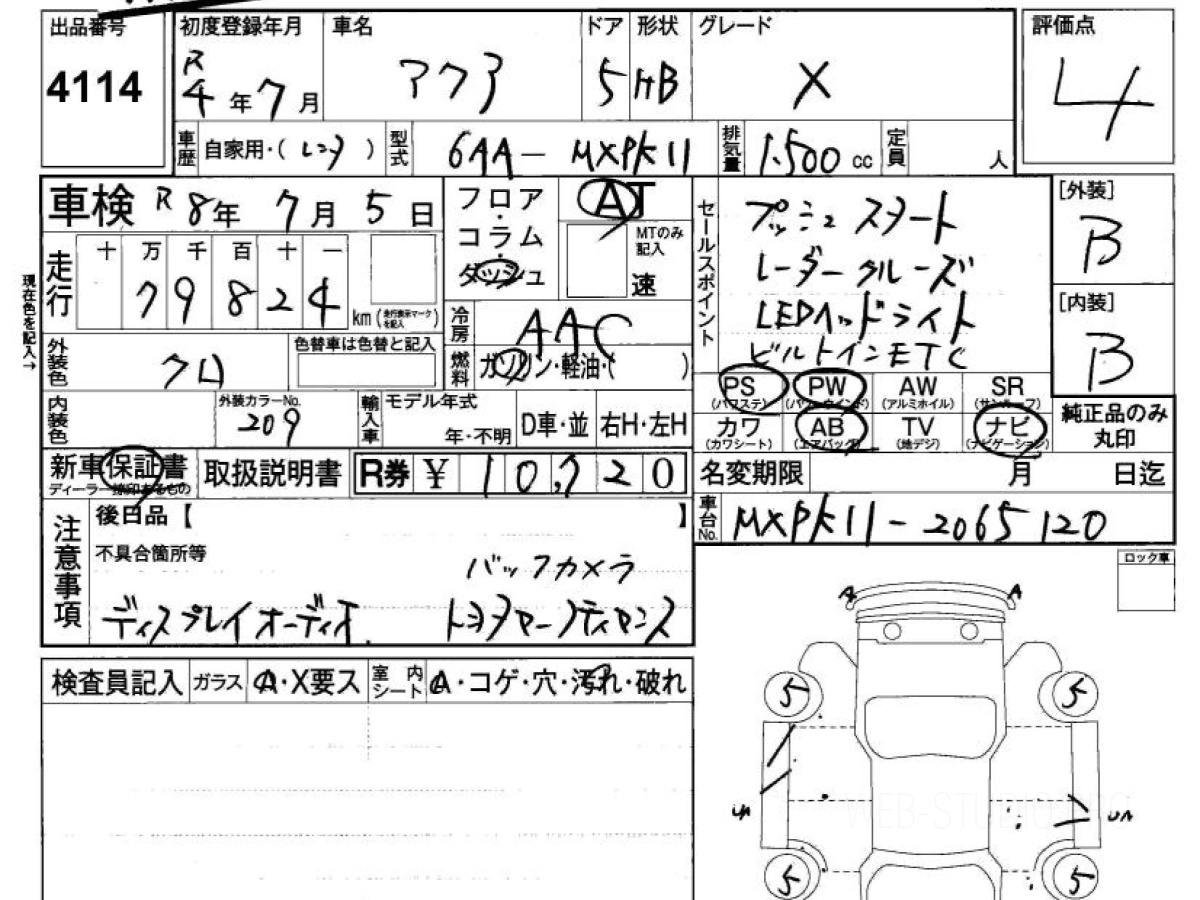 出品番号 初度登録年月 車名 ドア 形状 グレード 評価点
4114 R4年7月 アクア 5 HB X 4
車歴 自家用・(レンタ) 型式 6AA-MXPK11 排気量 1.500 cc 定員 人
車検 R8年7月5日
フロア・コラム・ダッシュ
AT
MTのみ記入
速
セールスポイント
プッシュスタート
レーダークルーズ
LEDヘッドライト
ビルトインETC
[外装]
B
[内装]
B
現在色を記入→
走行 十万千百十一
79824 km (走行表示マークを記入)
冷房 AAC
外装色 クロ 色替車は色替と記入
燃料 ガソリン・軽油・( )
内装色 外装カラーNo. 209
輸入車 モデル年式 年・不明 D車・並 右H・左H
PS (パワステ) PW (パワーウインド) AW (アルミホイル) SR (サンルーフ)
カワ (カワシート) AB (エアバック) TV (地デジ) ナビ (ナビゲーション)
純正品のみ丸印
新車保証書 取扱説明書 R券 ¥ 10,720
ディーラー捺印あるもの
名変期限 月 日迄
車台No. MXPK11-2065120
注意事項
後日品【 】
不具合箇所等
バックカメラ
ディスプレイオーディオ
ロック車
検査員記入 ガラス A・X要ス 室内シート A・コゲ・穴・汚れ・破れ
A A
5 5
UA UA
5 5
WEB-STUDIO